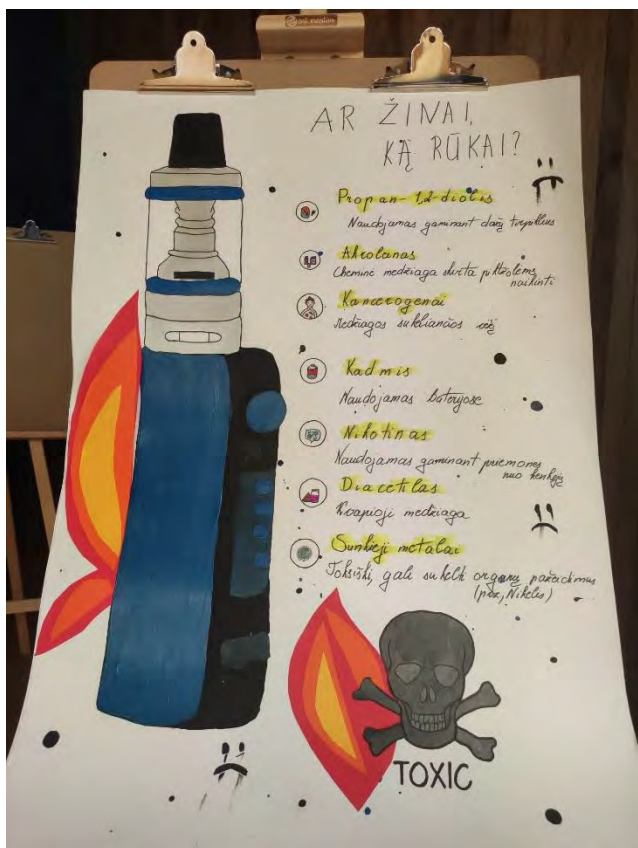 AR ŽINAI,
KĄ RŪKAI?
Propan-1,2-diolis
Naudojamas gaminant dažų tirpiklius
Akrolanas
Cheminė medžiaga skirta piktžolėms
naikinti
Kancerogenai
Medžiagos sukeliančios vėžį
Kadmis
Naudojamas baterijose
Nikotinas
Naudojamas gaminant priemones
nuo kenkėjų
Diacetilas
Kvapioji medžiaga
Sunkieji metalai
Toksiški, gali sukelti organų pažeidimus
(pvz., Nikelis)
TOXIC